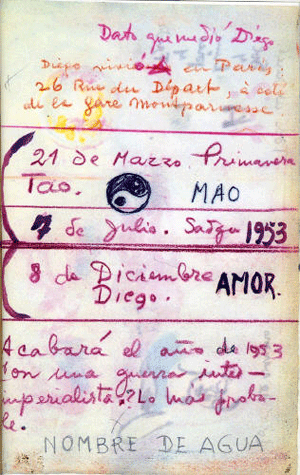 Dato que me dió Diego
Diego vivió en París
26 Rue du Départ, à coté
de la gare Montparnasse
21 de Marzo. Primavera
Tao. MAO
7 de Julio. 1953
8 de Diciembre AMOR.
Diego.
Acabará el año de 1953
con una guerra inter-
imperialista? Lo más proba-
ble.
NOMBRE DE AGUA